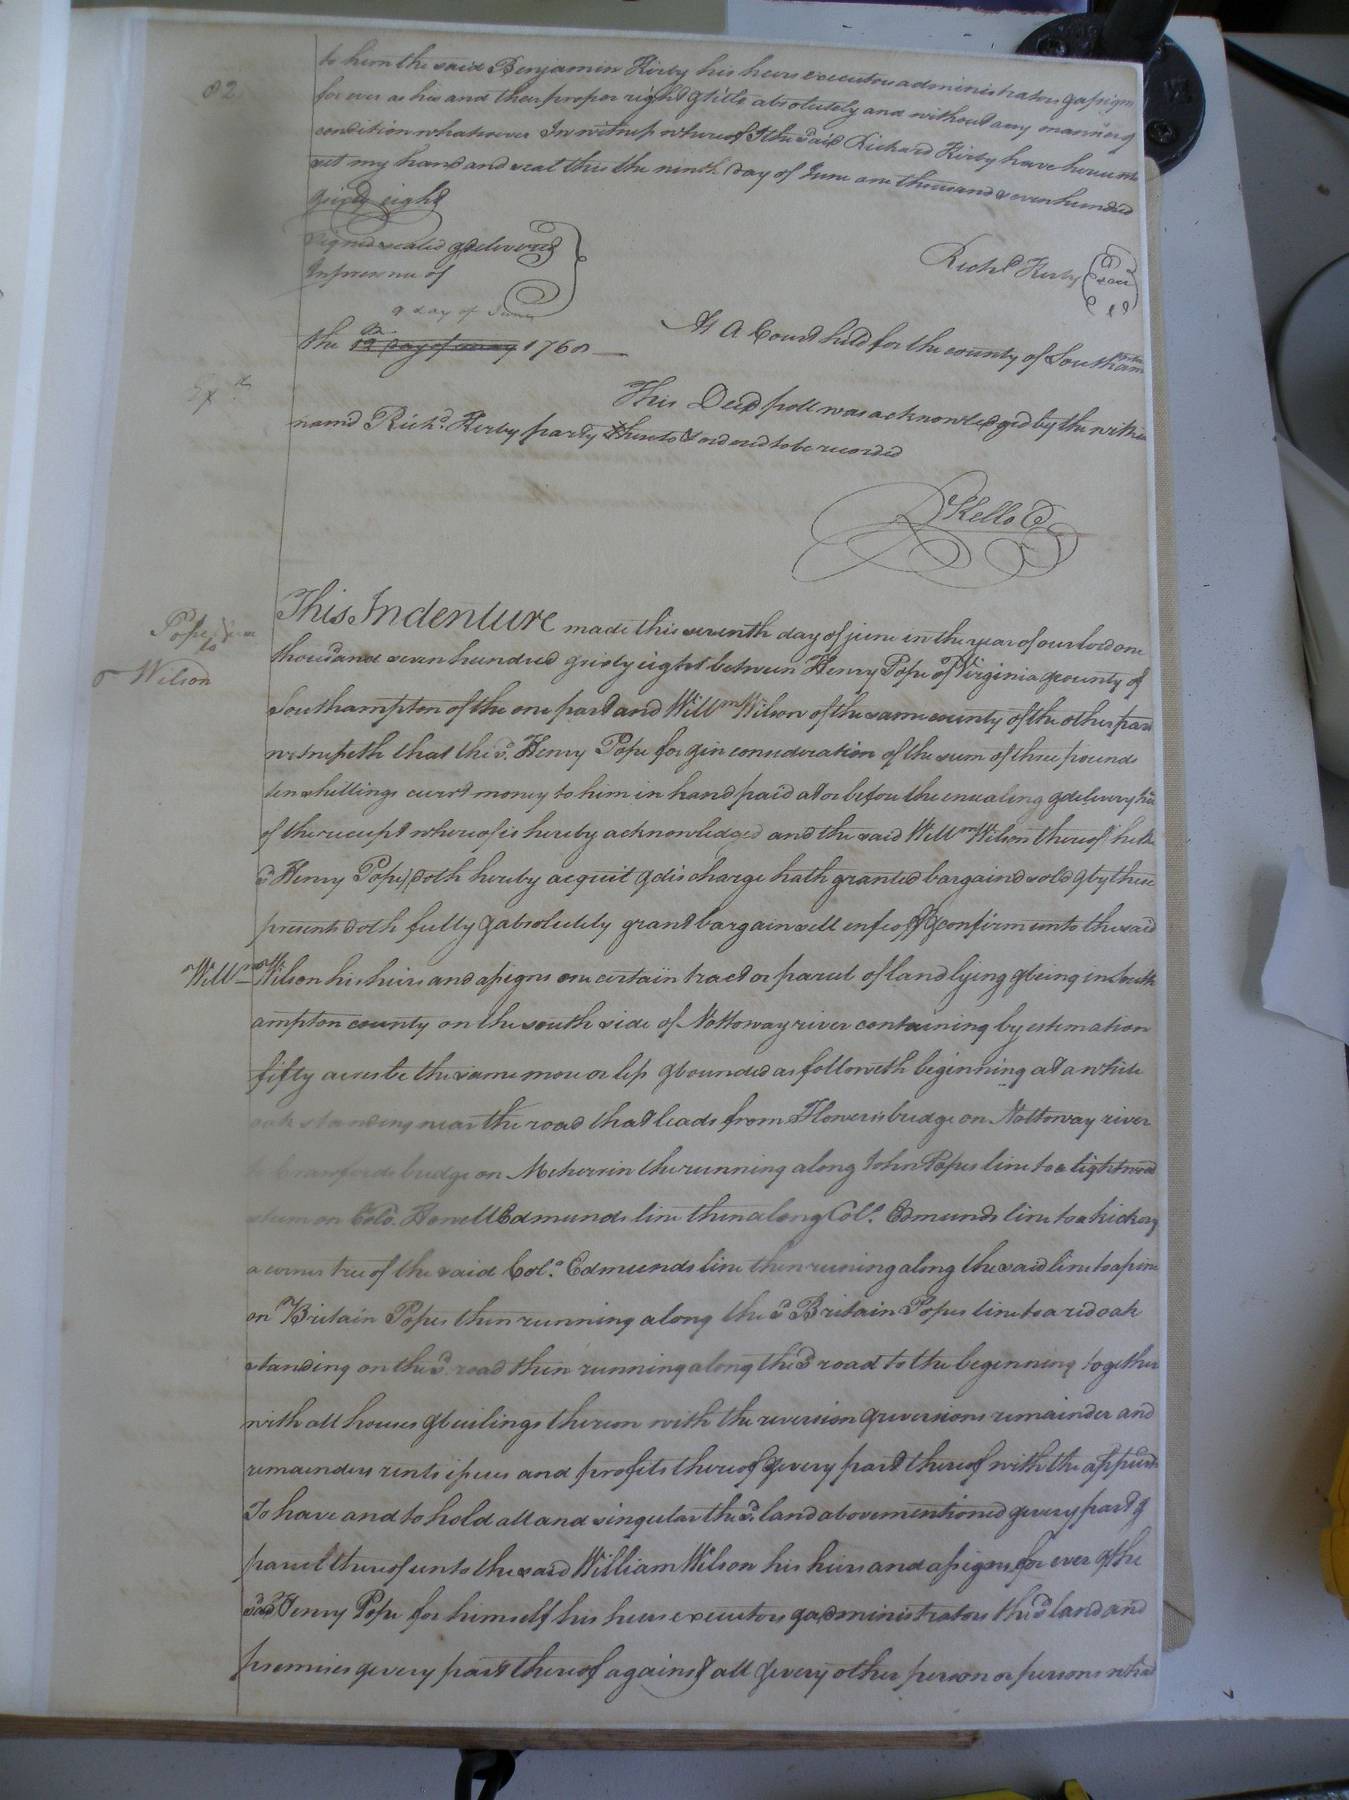 82
to him the said Benjamin Kirby his heirs executors administrators & assigns
for ever as his and their proper right & title absolutely and without any manner of
condition whatsoever In witness whereof I the said Richard Kirby have hereunto
set my hand and seal this the ninth day of June one thousand seven hundred
& sixty eight
Signed sealed & delivered
In presence of
Richd. Kirby Seal
9 day of June
At a Court held for the county of Southampton
the 12 day of may 1768
Exd.
This Deed poll was acknowledged by the within
namd Richd. Kirby party thereto & ordered to be recorded
R Kello C
This Indenture made this seventh day of june in the year of our lord one
Pope
to
thousand seven hundred & sixty eight between Henry Pope of Virginia & county of
Wilson
Southampton of the one part and Willm Wilson of the same county of the other part
witnesseth that the sd. Henry Pope for & in consideration of the sum of three pounds
ten shillings currt money to him in hand paid at or before the ensealing & delivery
of the receipt whereof is hereby acknowledged and the said Willm Wilson thereof he the
sd Henry Pope) doth hereby acquit & discharge hath granted bargaind sold & by these
presents doth fully & absolutely grant bargain sell enfeoff & confirm unto the said
Willm Wilson his heirs and assigns one certain tract or parcel of land lying & being in South
ampton county on the south side of Nottoway river containing by estemation
fifty acres be the same more or less & bounded as followeth beginning at a white
oak standing near the road that leads from Flowers bridge on Nottoway river
to Crawfords bridge on Meherrin the running along John Popes line to a lightwood
stum on Colo. Howell Edmunds line then along Colo. Edmunds line to a hickory
a corner tree of the said Colo. Edmunds line then runing along the said line to a pine
on Britain Popes then running along the sd Britain Popes line to a red oak
standing on the sd. road then running along the sd road to the beginning together
with all houses & builings thereon with the reversion & reversions remainder and
remainders rents issues and profits thereof & every part thereof with the appurts
To have and to hold all and singular the sd. land abovementioned & every part &
parcel thereof unto the said William Wilson his heirs and assigns for ever & the
said Henry Pope for himself his heirs executors & administrators the sd land and
premises & every part thereof against all & every other person or persons what